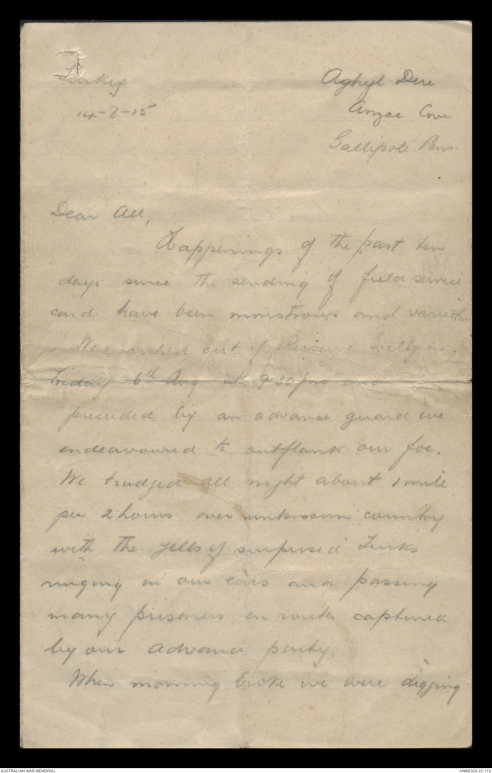 Turkey
14-8-15
Aghyl Dere
Anzac Cove
Gallipoli Pen.
Dear All,
Happenings of the past ten
days since the sending of field service
card have been monstrous and varied.
We marched out of Reserve Gully on
Friday 6th Aug at pm and
preceded by an advance guard we
endeavoured to outflank our foe.
We trudged all night about 1 mile
per 2 hours over unknown country
with the yells of surprised Turks
ringing in our ears and passing
many prisoners en route captured
by our advance party.
When morning broke we were digging
AUSTRALIAN WAR MEMORIAL